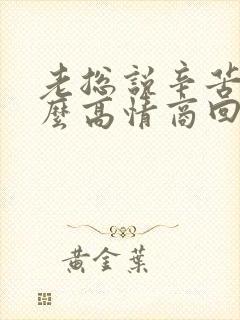 老総說辛苦
麼高情商回
黃金葉